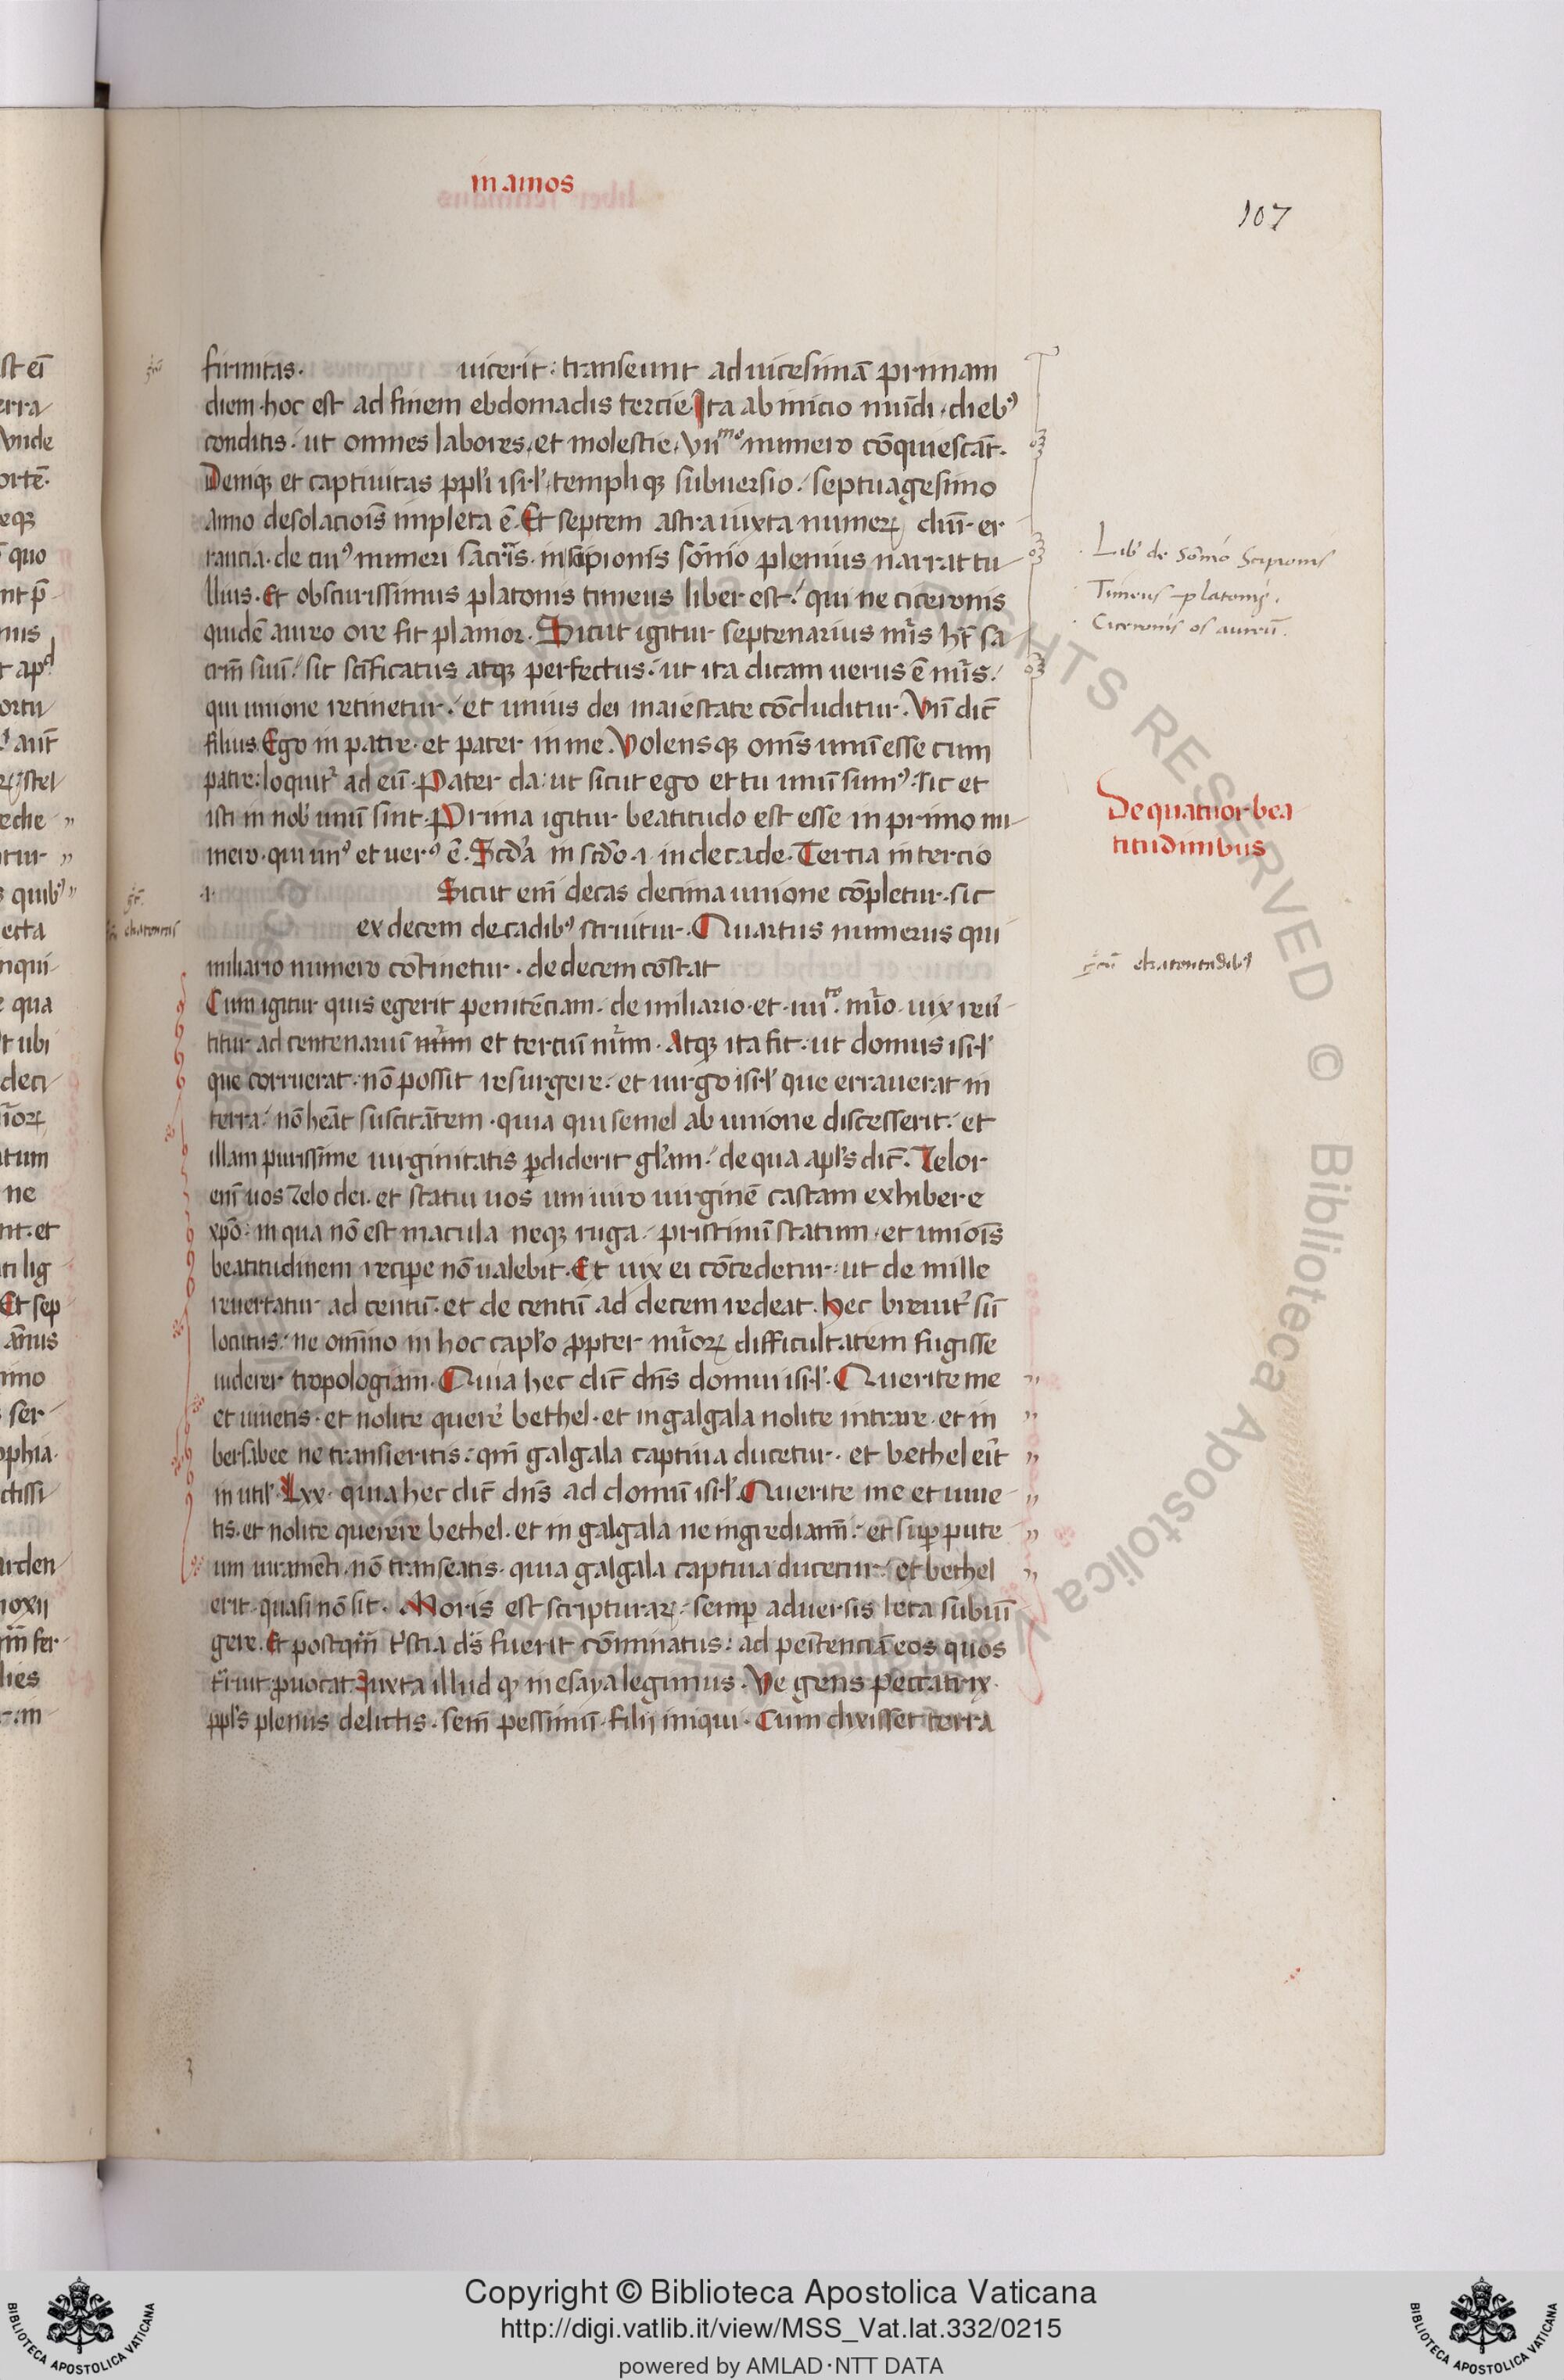 in amos
107
firmitas. uicerit: transeunt ad uicesimā primam
diem. hoc est ad finem ebdomadis tercie. Ita ab inicio mūdi. diebꝰ
conditis. ut omnes labores. et molestie. vııᵐᵒ numero cōquiescāt.
Deniqꝫ et captiuitas ppli isrl'. templiqꝫ subuersio. septuagesimo
anno desolaciois impleta ē. Et septem astra iuxta numeꝝ diuī er
rancia. de cuiꝰ numeri sacris. in scipionis somnio plenius narrat tu
llius. Et obscurissimus platonis timeus liber est. qui ne ciceronis
quidē aureo ore fit planior. Sicut igitur septenarius nr̄is ht̄ sa
crm̄ suū. sic scīficatus atqꝫ perfectus. ut ita dicam uerus ē nr̄is.
qui unione retinetur. et unius dei maiestate cōcluditur. Vn̄ dic̄
filius. Ego in patre. et pater in me. Volensqꝫ om̄s unū esse cum
patre: loquit' ad eū. Pater da: ut sicut ego et tu unū sumꝰ. sic et
isti in nob' unū sint. Prima igitur beatitudo est esse in primo nu
mero. qui unꝰ et uerꝰ ē. Scd'a in scd'o .i. in decade. Tercia in tercio
.i. Sicut em̄ decas decima unione cōpletur. sic
ex decem decadibꝰ struitur. Quartus numerus qui
miliario numero cōtinetur. de decem cōstat
Cum igitur quis egerit penitēciam. de miliario. et .iiiito. nr̄o. uix reu̅
titur ad centenariū nr̄um et terciū nr̄um. Atqꝫ ita fit. ut domus isrl'
que corruerat. nō possit resurgere. et uirgo isrl' que errauerat in
terra. nō heāt suscitātem. quia qui semel ab unione discesserit. et
illam purissime uirginitatis ꝑdiderit gl'am. de qua apl's dic̄. Zelor
em̄ uos zelo dei. et statui uos uni uiro uirginē castam exhibere
xp̄o. in qua nō est macula neqꝫ ruga. pristinū statum. et uniois̄
beatitudinem reciꝑe nō ualebit. Et uix ei cōcedetur. ut de mille
reuertatur ad centū. et de centū ad decem redeat. Hec breuit' sū
locutus. ne om̄ino in hoc capl'o ꝓpter nr̄oꝝ difficultatem fugisse
uiderer tropologiam. Quia hec dic̄ dn̄s domui isrl'. Querite me
et uiuetis. et nolite querer̄ bethel. et in galgala nolite intrare. et in
bersabee ne transieritis. qm̄ galgala captiua ducetur. et bethel eit̄
in util'. Lxx. quia hec dic̄ dn̄s ad domū isrl'. Querite me et uiue
tis. et nolite querere bethel. et in galgala ne ingrediam̄. et suꝑ pute
um iuramēti. nō transeatis. quia galgala captiua ducetur. et bethel
erit. quasi nō sit. Moris est scripturaꝝ. semꝑ aduersis leta subiū
gere. Et postqm̄ t'stia ds̄ fuerit cōminatus: ad peītenciā eos quos
t'ruit ꝓuocat. Iuxta illud qꝫ in esaya legimus. Ve gens peccatrix.
ppl's plenus delictis. sem̄ pessimū. filij iniqui. Cum dixisset terra
Lib' de Sōmo Scipionis
Timeus platonis.
Ciceronis os aureū.
De quatuor bea
titudinibus
ekatontadibꝰ
Copyright © Biblioteca Apostolica Vaticana
http://digi.vatlib.it/view/MSS_Vat.lat.332/0215
powered by AMLAD·NTT DATA
BIBLIOTECA APOSTOLICA VATICANA
BIBLIOTECA APOSTOLICA VATICANA